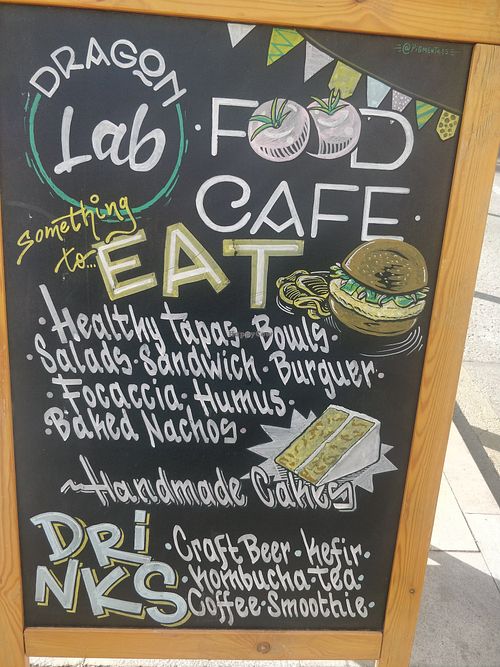 @PIGMENTA15
DRAGON
Lab
FOOD
CAFE
Something
to...
EAT
· Healthy Tapas · Bowls ·
· Salads · Sandwich · Burguer ·
· Focaccia · Humus ·
· Baked Nachos ·
Handmade Cakes
DRINKS
· Craft Beer · Kefir ·
· Kombucha · Tea ·
Coffee · Smoothie ·